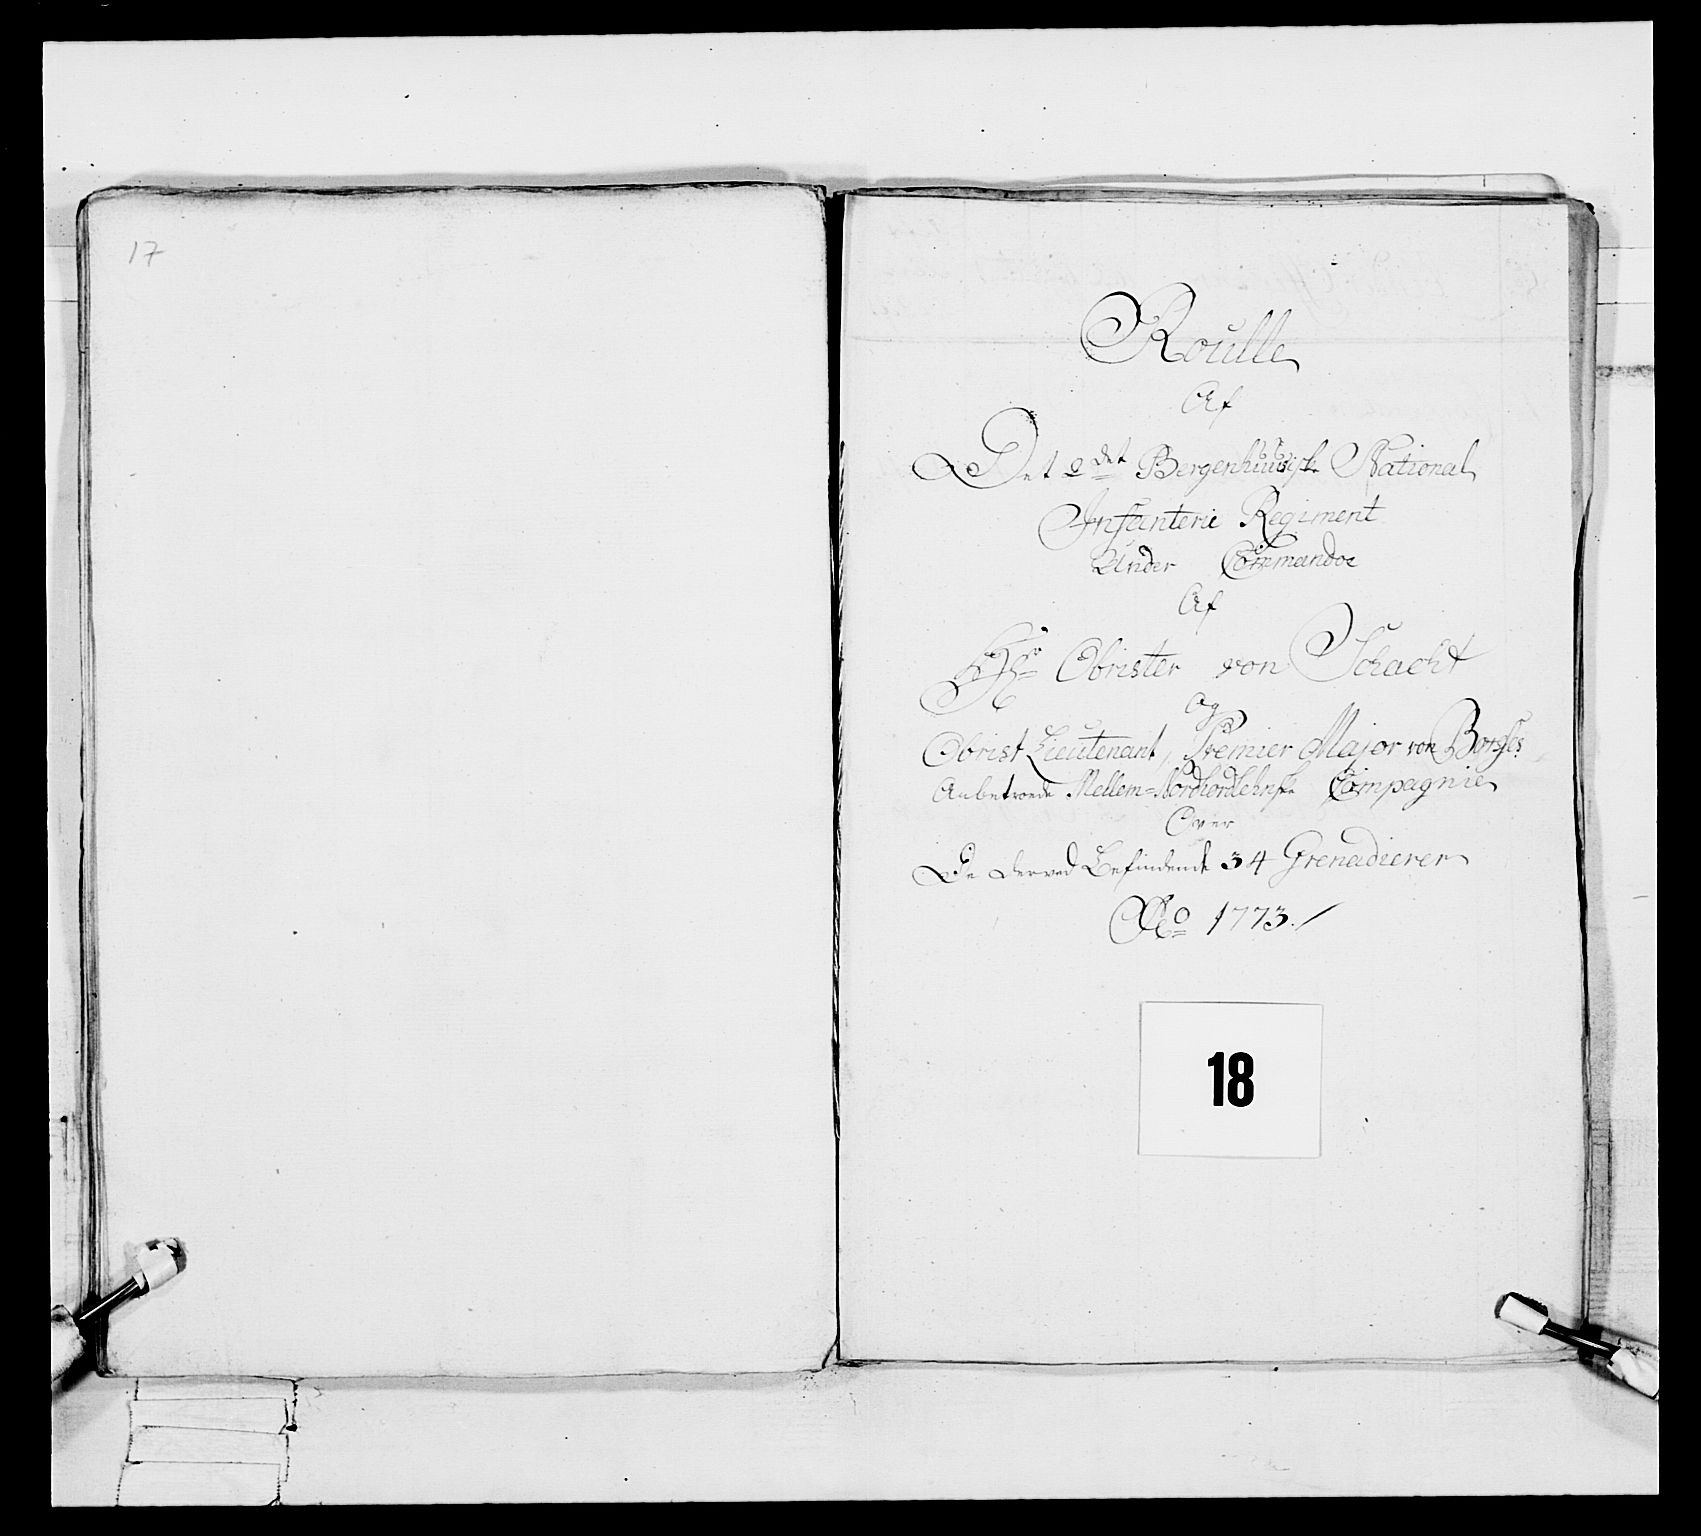 17
Roulle
Af
Det 2det Bergenhuusiske National
Infanterie Regiment
Under Commandoe
Af
Hr Obrister von Schacht
Og
Obrist Lieutenant, Premier Major von
Anbetroede Mellem=Nordhordlehnske Compagnie
Over
De derved Befindende 34 Grenadierer
Ao 1773./
18